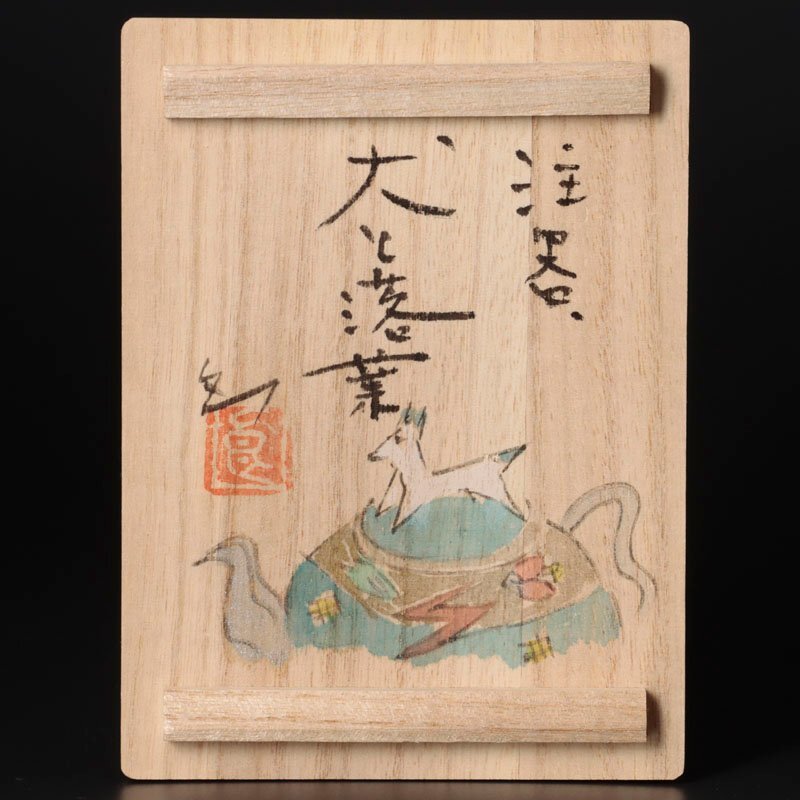 注器
犬と落葉